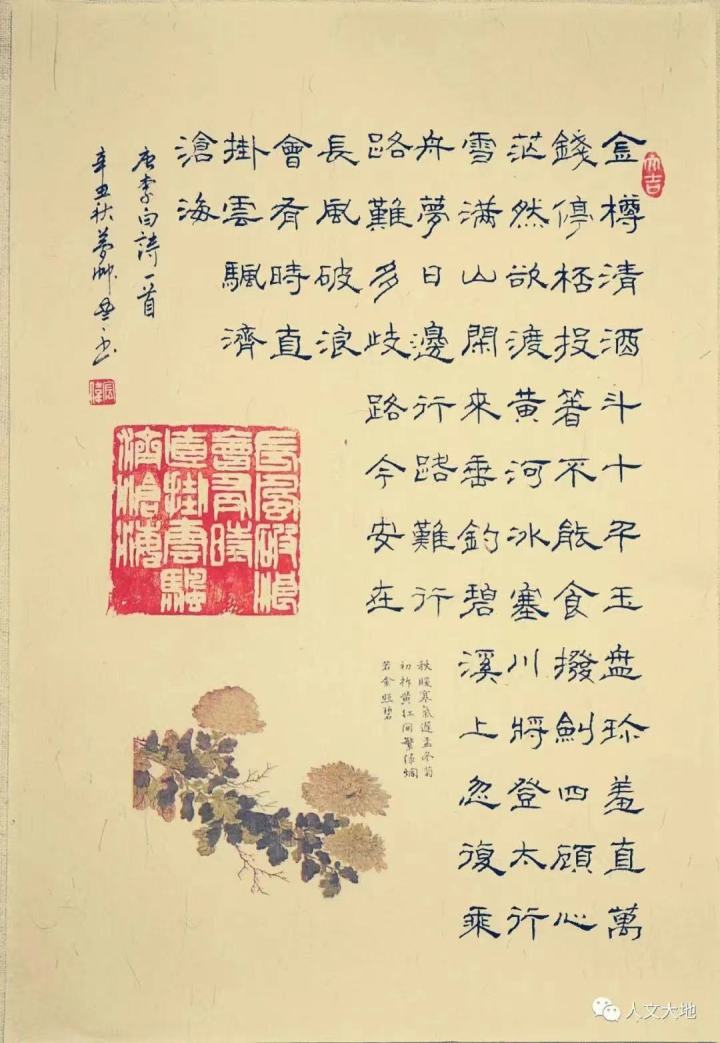 大吉
金樽清酒斗十千玉盤珍羞直萬
錢停桮投箸不能食撥劍四顧心
茫然欲渡黃河冰塞川將登太行
雪滿山閑來垂釣碧溪上忽復乘
舟夢日邊行路難行
路難多歧路今安在
長風破浪
會有時直
掛雲颿濟
滄海
唐李白詩一首
辛丑秋夢
長風破浪
會有時
直掛雲颿
濟滄海
秋暖寒氣遲孟冬菊
初拆黃紅間繁綠爛
若金照碧
人文大地